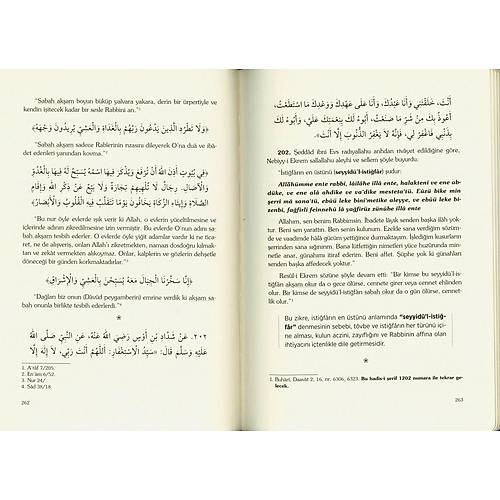 "Sabah akşam boyun büküp yalvara yakara, derin bir ürpertiyle ve
kendin işitecek kadar bir sesle Rabbini an."¹
﴿وَلَا تَطْرُدِ الَّذِينَ يَدْعُونَ رَبَّهُمْ بِالْغَدَاةِ وَالْعَشِيِّ يُرِيدُونَ وَجْهَهُ﴾
"Sabah akşam sadece Rablerinin rızasını dileyerek O'na dua ve ibâ-
det edenleri yanından kovma."²
﴿فِي بُيُوتٍ أَذِنَ اللهُ أَنْ تُرْفَعَ وَيُذْكَرَ فِيهَا اسْمُهُ يُسَبِّحُ لَهُ فِيهَا بِالْغُدُوِّ
وَالْآصَالِ. رِجَالٌ لَا تُلْهِيهِمْ تِجَارَةٌ وَلَا بَيْعٌ عَنْ ذِكْرِ اللهِ وَإِقَامِ
الصَّلَاةِ وَإِيتَاءِ الزَّكَاةِ يَخَافُونَ يَوْمًا تَتَقَلَّبُ فِيهِ الْقُلُوبُ وَالْأَبْصَارُ﴾
"Bu nur öyle evlerde ışık verir ki Allah, o evlerin yüceltilmesine ve
içlerinde adının zikredilmesine izin vermiştir. Bu evlerde O'nun adını sa-
bah akşam tesbih ederler. O evlerde öyle yiğit adamlar vardı ki ne tica-
ret, ne de alışveriş, onları Allah'ı zikretmekten, namazı dosdoğru kılmak-
tan ve zekât vermekten alıkoymaz. Onlar, kalplerin ve gözlerin dehşetle
döneceği bir günden korkmaktadırlar."³
﴿إِنَّا سَخَّرْنَا الْجِبَالَ مَعَهُ يُسَبِّحْنَ بِالْعَشِيِّ وَالْإِشْرَاقِ﴾
"Dağları biz onun (Dâvûd peygamberin) emrine verdik ki akşam sa-
bah onunla birlikte tesbih ederlerdi."⁴
٢٠٢. عَنْ شَدَّادِ بْنِ أَوْسٍ رَضِيَ اللهُ عَنْهُ، عَنِ النَّبِيِّ صَلَّى اللهُ
عَلَيْهِ وَسَلَّمَ قَالَ: «سَيِّدُ الْاِسْتِغْفَارِ: اَللّٰهُمَّ أَنْتَ رَبِّي، لَا إِلٰهَ إِلَّا
1. A'râf 7/205.
2. En'âm 6/52.
3. Nur 24/
4. Sâd 38/18.
262
أَنْتَ، خَلَقْتَنِي وَأَنَا عَبْدُكَ، وَأَنَا عَلَى عَهْدِكَ وَوَعْدِكَ مَا اسْتَطَعْتُ،
أَعُوذُ بِكَ مِنْ شَرِّ مَا صَنَعْتُ، أَبُوءُ لَكَ بِنِعْمَتِكَ عَلَيَّ، وَأَبُوءُ
بِذَنْبِي فَاغْفِرْ لِي، فَإِنَّهُ لَا يَغْفِرُ الذُّنُوبَ إِلَّا أَنْتَ».
202. Şeddâd ibni Evs radıyallahu anhdan rivâyet edildiğine göre,
Nebiyy-i Ekrem sallallahu aleyhi ve sellem şöyle buyurdu:
"İstiğfârın en üstünü (seyyidü'l-istiğfâr) şudur:
Allâhümme ente rabbî, lâilâhe illâ ente, halakteni ve ene ab-
düke, ve ene alâ ahdike ve va'dike mesteta'tü. Eûzü bike min
şerri mâ sana'tü, ebûü leke bini'metike aleyye, ve ebûü leke bi-
zenbî, fağfirlî feinnehû lâ yağfirüz zünûbe illâ ente
Allahım, sen benim Rabbimsin. İbadete lâyık senden başka ilâh yok-
tur. Beni sen yarattın. Ben senin kulunum. Ezelde sana verdiğim sözüm-
de ve vaadimde hâlâ gücüm yettiğince durmaktayım. İşlediğim kusurların
şerrinden sana sığınırım. Bana lütfettiğin nimetleri yüce huzurunda min-
netle anar, günahımı itiraf ederim. Beni affet. Şüphe yok ki günahları
senden başka affedecek yoktur."
Resûl-i Ekrem sözüne şöyle devam etti: "Bir kimse bu seyyidü'l-isti-
ğfârı akşam okur da o gece ölürse, cennete girer veya cennet ehlinden
olur. Bir kimse de seyyidü'l-istiğfârı sabah okur da o gün ölürse, cennetlik
olur."¹
Bu zikre, istiğfârın en üstünü anlamında "seyyidü'l-istiğ-
fâr" denmesinin sebebi, tövbe ve istiğfârın her türünü içi-
ne alması, kulun aczini, zayıflığını ve Rabbinin affına olan
ihtiyacını içtenlikle dile getirmesidir.
1. Buhârî, Daavât 2, 16, nr. 6306, 6323. Bu hadis-i şerif 1202 numara ile tekrar ge-
lecek.
263